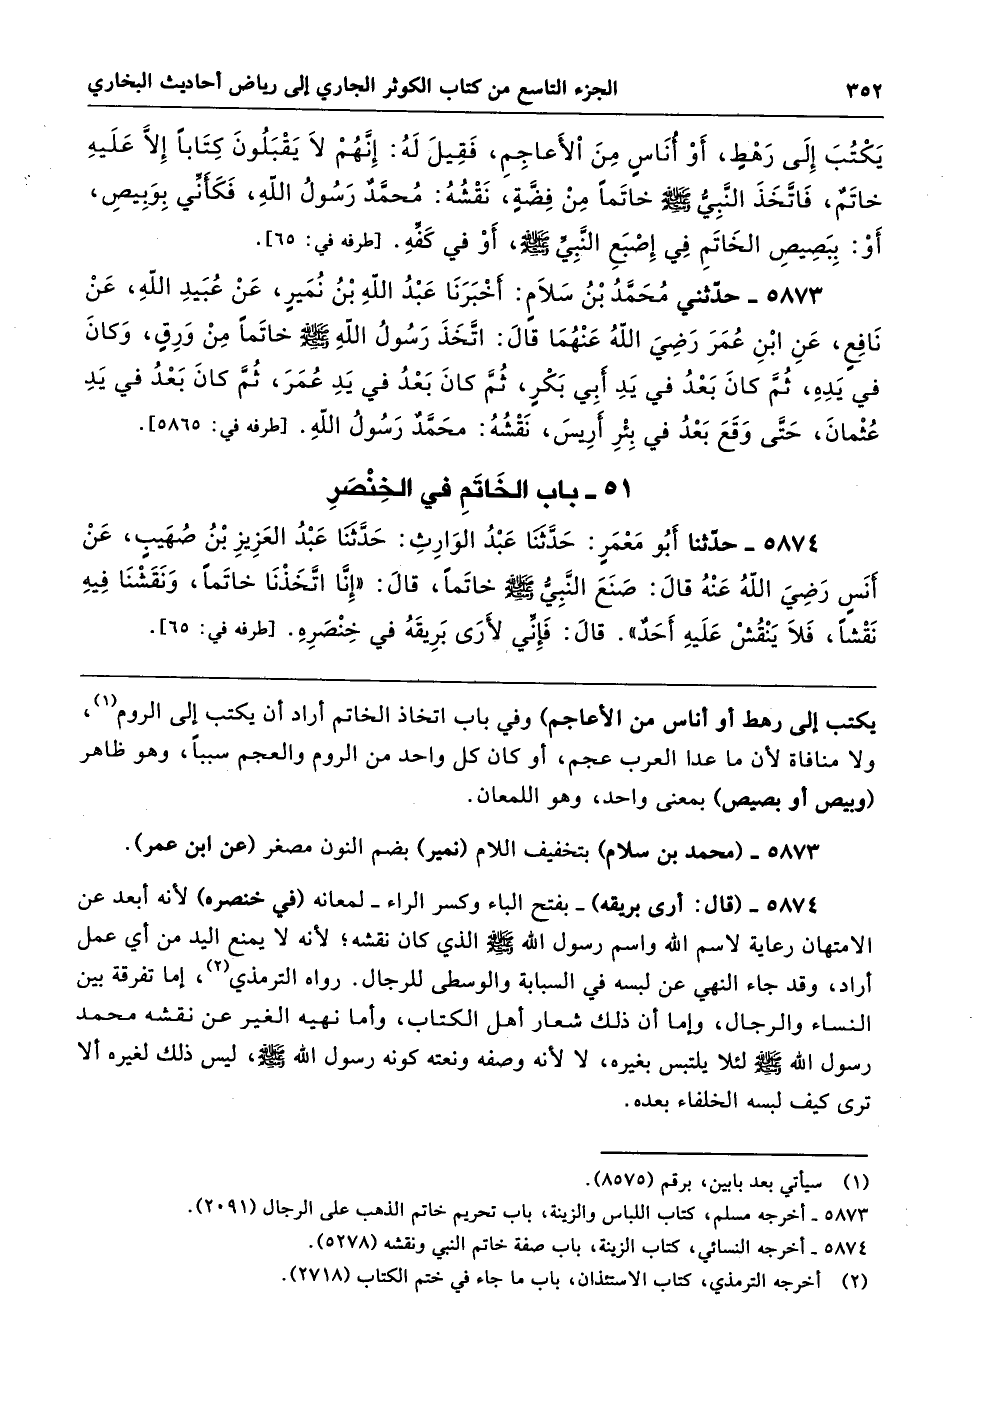 ٣٥٢ الجزء التاسع من كتاب الكوثر الجاري إلى رياض أحاديث البخاري
يَكْتُبَ إِلَى رَهْطٍ، أَوْ أُنَاسٍ مِنَ الأَعاجِمِ، فَقِيلَ لَهُ: إِنَّهُمْ لاَ يَقْبَلُونَ كِتَاباً إِلاَّ عَلَيهِ
خاتَمٌ، فَاتَّخَذَ النَّبِيُّ ﷺ خاتَماً مِنْ فِضَّةٍ، نَقْشُهُ: مُحَمَّدٌ رَسُولُ اللّهِ، فَكَأَنِّي بِوَبِيصِ،
أَوْ: بِبَصِيصِ الخَاتَمِ فِي إِصْبَعِ النَّبِيِّ ﷺ، أَوْ في كَفِّهِ. [طرفه في: ٦٥].
٥٨٧٣ ـ حدّثني مُحَمَّدُ بْنُ سَلاَمٍ: أَخْبَرَنَا عَبْدُ اللّهِ بْنُ نُمَيرٍ، عَنْ عُبَيدِ اللّهِ، عَنْ
نَافِعٍ، عَنِ ابْنِ عُمَرَ رَضِيَ اللّهُ عَنْهُمَا قالَ: اتَّخَذَ رَسُولُ اللّهِ ﷺ خاتَماً مِنْ وَرِقٍ، وَكانَ
في يَدِهِ، ثُمَّ كانَ بَعْدُ في يَدِ أَبِي بَكْرٍ، ثُمَّ كانَ بَعْدُ في يَدِ عُمَرَ، ثُمَّ كانَ بَعْدُ في يَدِ
عُثْمانَ، حَتَّى وَقَعَ بَعْدُ في بِئْرِ أَرِيسَ، نَقْشُهُ: محَمَّدٌ رَسُولُ اللّهِ. [طرفه في: ٥٨٦٥].
٥١ ـ باب الخَاتَمِ في الخِنْصَرِ
٥٨٧٤ ـ حدّثنا أَبُو مَعْمَرٍ: حَدَّثَنَا عَبْدُ الوَارِثِ: حَدَّثَنَا عَبْدُ العَزِيزِ بْنُ صُهَيبٍ، عَنْ
أَنَسٍ رَضِيَ اللّهُ عَنْهُ قالَ: صَنَعَ النَّبِيُّ ﷺ خاتَماً، قالَ: «إِنَّا اتَّخَذْنَا خاتَماً، وَنَقَشْنَا فِيهِ
نَقْشاً، فَلاَ يَنْقُشْ عَلَيهِ أَحَدٌ». قالَ: فَإِنِّي لأَرَى بَرِيقَهُ في خِنْصَرِهِ. [طرفه في: ٦٥].
يكتب إلى رهط أو أناس من الأعاجم) وفي باب اتخاذ الخاتم أراد أن يكتب إلى الروم(١)،
ولا منافاة لأن ما عدا العرب عجم، أو كان كل واحد من الروم والعجم سبباً، وهو ظاهر
(وبيص أو بصيص) بمعنى واحد، وهو اللمعان.
٥٨٧٣ ـ (محمد بن سلام) بتخفيف اللام (نمير) بضم النون مصغر (عن ابن عمر).
٥٨٧٤ ـ (قال: أرى بريقه) ـ بفتح الباء وكسر الراء ـ لمعانه (في خنصره) لأنه أبعد عن
الامتهان رعاية لاسم الله واسم رسول الله ﷺ الذي كان نقشه؛ لأنه لا يمنع اليد من أي عمل
أراد، وقد جاء النهي عن لبسه في السبابة والوسطى للرجال. رواه الترمذي(٢)، إما تفرقة بين
النساء والرجال، وإما أن ذلك شعار أهل الكتاب، وأما نهيه الغير عن نقشه محمد
رسول الله ﷺ لئلا يلتبس بغيره، لا لأنه وصفه ونعته كونه رسول الله ﷺ، ليس ذلك لغيره ألا
ترى كيف لبسه الخلفاء بعده.
(١) سيأتي بعد بابين، برقم (٨٥٧٥).
٥٨٧٣ ـ أخرجه مسلم، كتاب اللباس والزينة، باب تحريم خاتم الذهب على الرجال (٢٠٩١).
٥٨٧٤ ـ أخرجه النسائي، كتاب الزينة، باب صفة خاتم النبي ونقشه (٥٢٧٨).
(٢) أخرجه الترمذي، كتاب الاستئذان، باب ما جاء في ختم الكتاب (٢٧١٨).